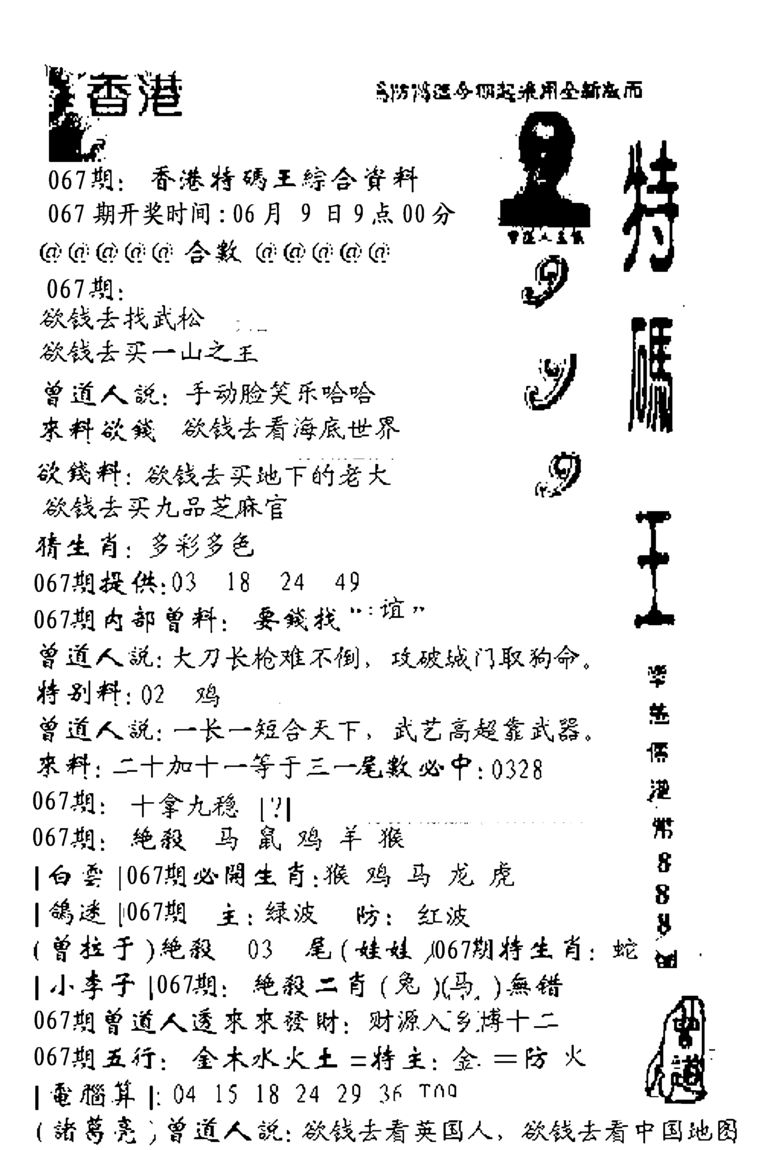 香港
特碼王
067期：香港特碼王綜合資料
067期开奖时间:06月 9 日9点00分
@@@@@ 合數 @@@@@
067期：
欲钱去找武松
欲钱去买一山之王
曾道人説：手动脸笑乐哈哈
來料欲錢 欲钱去看海底世界
欲錢料：欲钱去买地下的老大
欲钱去买九品芝麻官
猜生肖：多彩多色
067期提供:03 18 24 49
067期内部曾料：要錢找“:谊”
曾道人説：大刀长枪难不倒，攻破城门取狗命。
特别料：02 鸡
曾道人説：一长一短合天下，武艺高超靠武器。
來料：二十加十一等于三一尾數必中：0328
067期：十拿九稳 |?|
067期：絶殺 马 鼠 鸡 羊 猴
|白雲|067期必開生肖:猴 鸡 马 龙 虎
|鴿迷|067期 主：绿波 防：红波
(曾拉于)絶殺 03 尾(娃娃)067期特生肖：蛇
|小李子|067期：絶殺二肖(兔)(马)無错
067期曾道人透來來發財：财源入乡博十二
067期五行：金木水火土=特主：金 =防 火
|電腦算|：04 15 18 24 29 36 T09
(諸葛亮)曾道人説：欲钱去看英国人，欲钱去看中国地图
港幣888